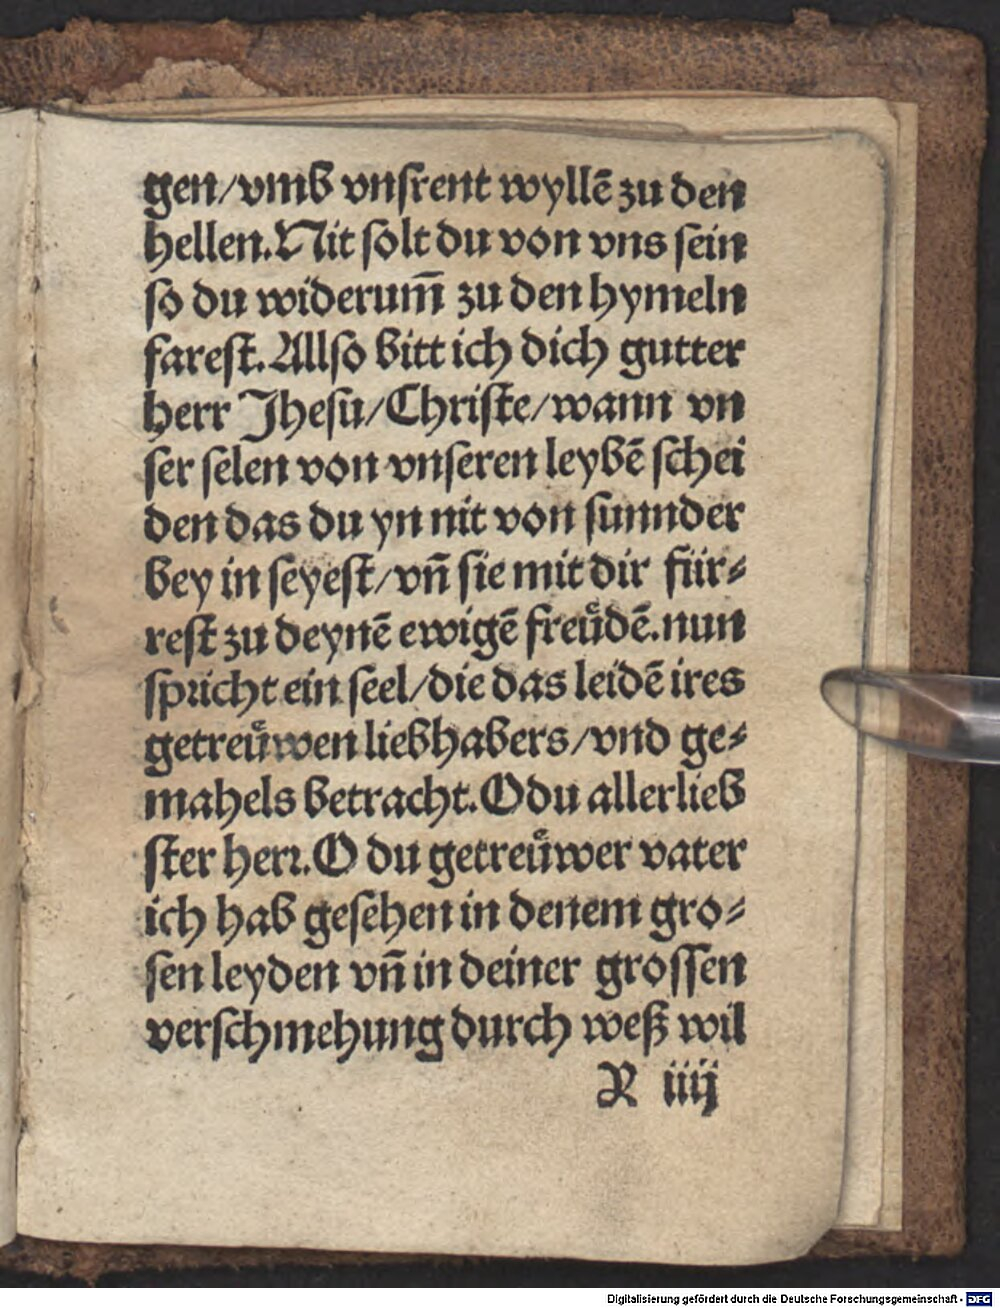 gen/vmb vnſrent wyllē zu den
hellen. Nit ſolt du von vns ſein
ſo du widerum̄ zu den hymeln
fareſt. Allſo bitt ich dich gutter
herr Jheſu/Chriſte/wann vn
ſer ſelen von vnſeren leybē ſchei
den das du yn nit von ſunnder
bey in ſeyeſt/vn̄ ſie mit dir für⸗
reſt zu deynē ewigē freuͤdē. nun
ſpricht ein ſeel/die das leidē ires
getreuͤwen liebhabers/vnd ge⸗
mahels betracht. O du allerlieb
ſter herꝛ. O du getreuͤwer vater
ich hab geſehen in denem gro⸗
ſen leyden vn̄ in deiner groſſen
verſchmehung durch weß wil
R iiij
Digitalisierung gefördert durch die Deutsche Forschungsgemeinschaft - DFG